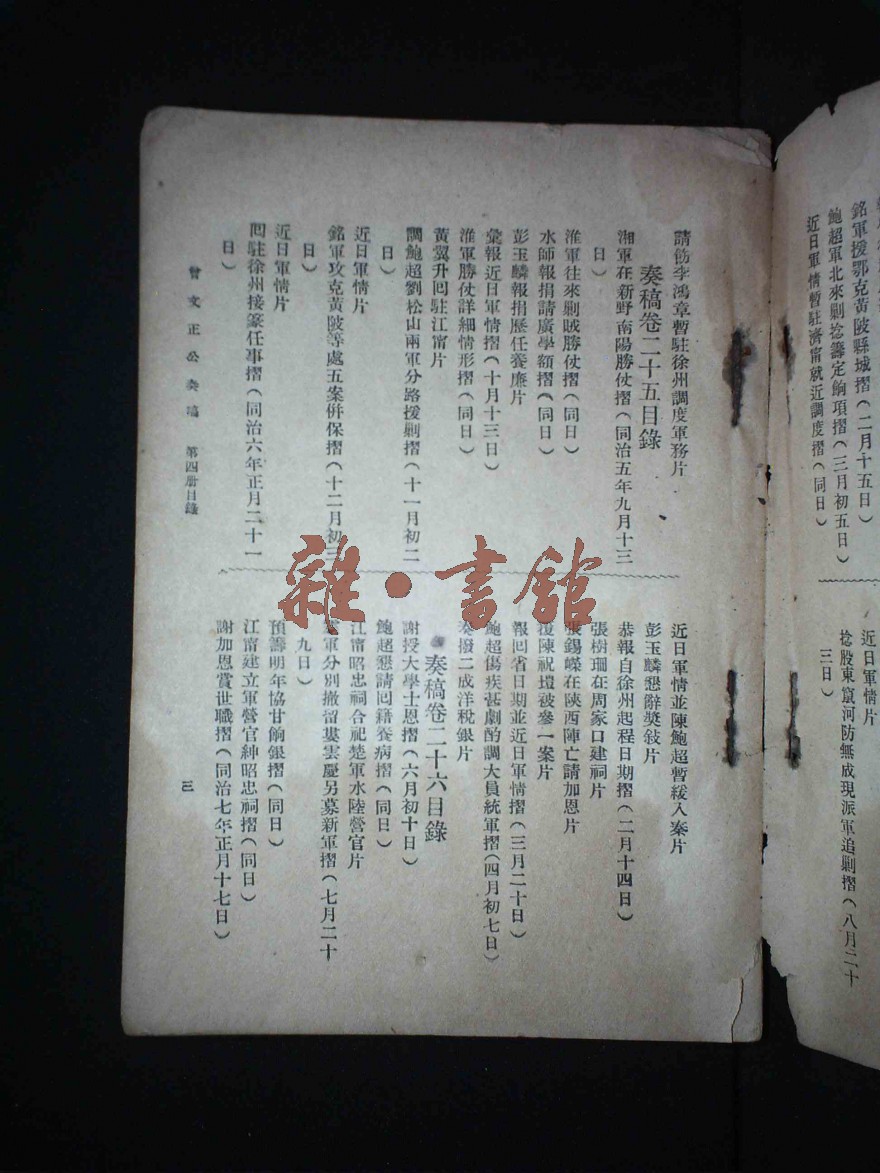 銘軍援鄂克黃陂縣城摺(二月十五日)
鮑超軍北來剿捻籌定餉項摺(三月初五日)
近日軍情暫駐濟甯就近調度摺(同日)
近日軍情片
捻股東竄河防無成現派軍追剿摺(八月二十
三日)
請飭李鴻章暫駐徐州調度軍務片
奏稿卷二十五目錄
湘軍在新野南陽勝仗摺(同治五年九月十三
日)
淮軍往來剿賊勝仗摺(同日)
水師報捐請廣學額摺(同日)
彭玉麟報捐歷任養廉片
彙報近日軍情摺(十月十三日)
淮軍勝仗詳細情形摺(同日)
黃翼升回駐江甯片
調鮑超劉松山兩軍分路援剿摺(十一月初二
日)
近日軍情片
銘軍攻克黃陂等處五案併保摺(十二月初三
日)
近日軍情片
回駐徐州接篆任事摺(同治六年正月二十一
日)
近日軍情並陳鮑超暫緩入秦片
彭玉麟懇辭獎敍片
恭報自徐州起程日期摺(二月十四日)
張樹珊在周家口建祠片
張錫嶸在陝西陣亡請加恩片
援陳祝壇被參一案片
報回省日期並近日軍情摺(三月二十日)
鮑超傷疾甚劇酌調大員統軍摺(四月初七日)
奏撥二成洋稅銀片
奏稿卷二十六目錄
謝授大學士恩摺(六月初十日)
鮑超懇請回籍養病摺(同日)
江甯昭忠祠合祀楚軍水陸營官片
軍分別撤留婁雲慶另募新軍摺(七月二十
九日)
預籌明年協甘餉銀摺(同日)
江甯建立軍營官紳昭忠祠摺(同日)
謝加恩賞世職摺(同治七年正月十七日)
曾文正公奏稿 第四冊目錄
三
雜·書館